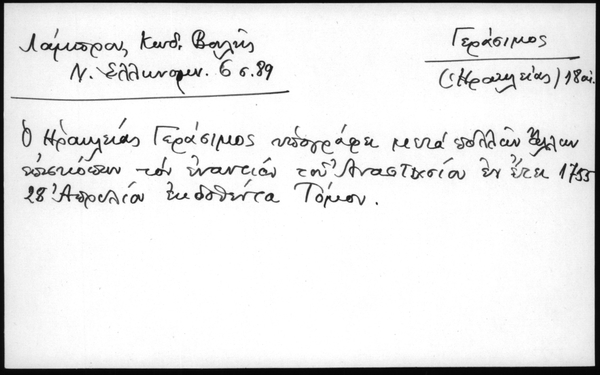 Λάμπρος Κωδ. Βουλῆς
Ν. Ἑλληνομν. 6 σ. 89
Γεράσιμος
(Ἡρακλείας) 18 αἰ.
Ὁ Ἡρακλείας Γεράσιμος ὑπογράφει μετά πολλῶν ἄλλων
ἐπισκόπων τόν ἐναντίον τοῦ Ἀναστασίου ἐν ἔτει 1755
28 Ἀπριλίου ἐκδοθέντα Τόμον.